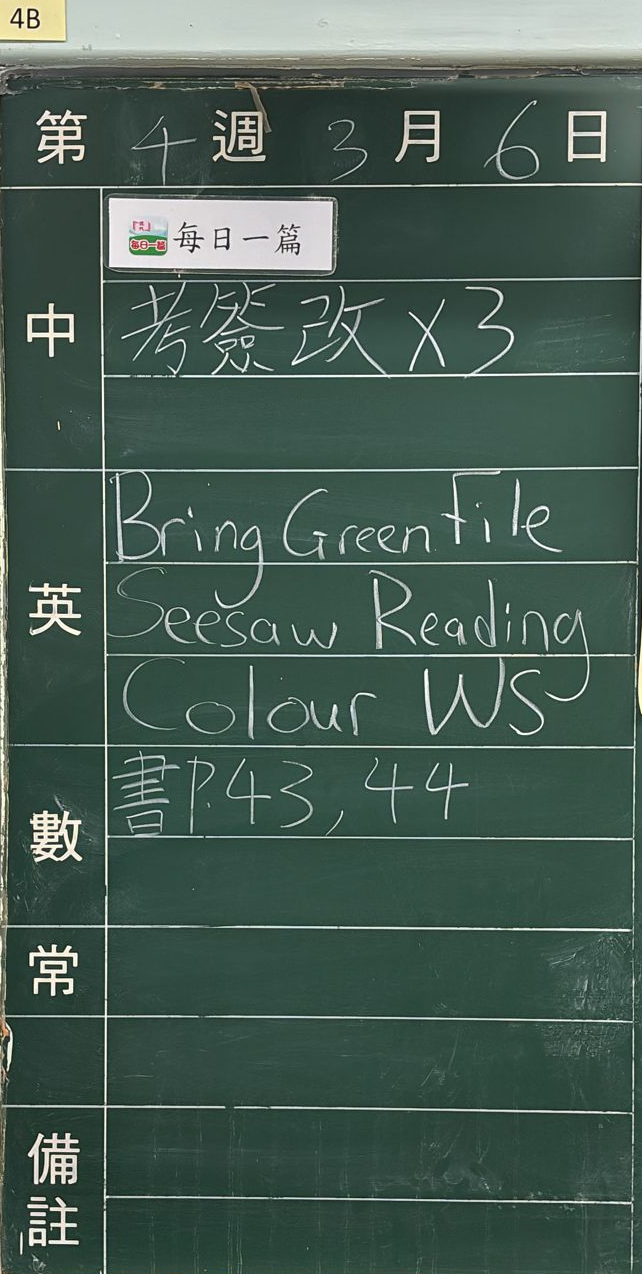 4B
第 4 週 3 月 6 日
中
每日一篇 每日一篇
考簽改 x3
英
Bring Green File
Seesaw Reading
Colour WS
數
書P.43, 44
常
備註